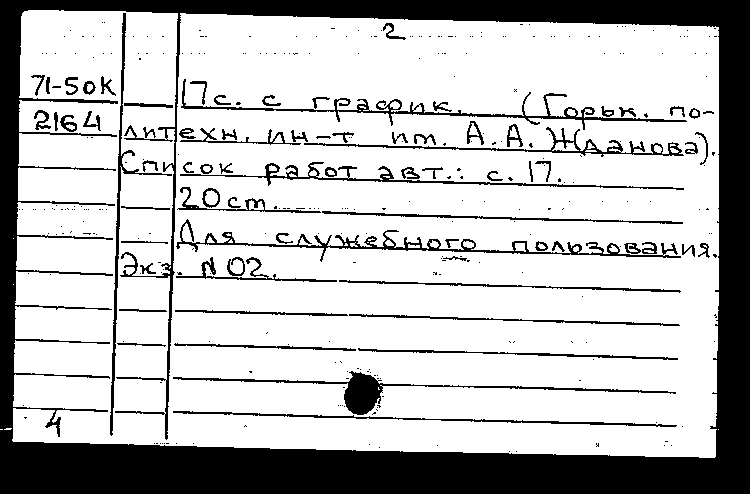 2
71-5ок 17с. с график. (Горьк. по-
2164 литехн. ин-т им. А.А. Жданова).
Список работ авт.: с. 17.
20см.
Для служебного пользования.
Экз. N02.
4